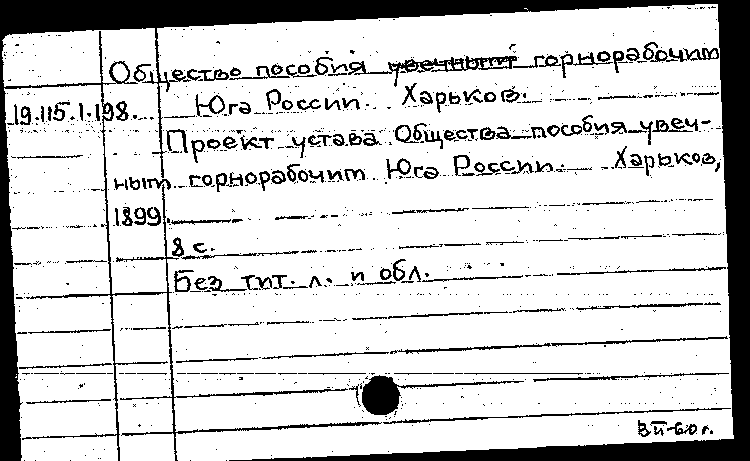 Общество пособия увечным горнорабочим
19.115.1.198. Юга России. Харьков.
Проект устава Общества пособия увеч-
ным горнорабочим Юга России. Харьков,
1899.
8 с.
Без тит. л. и обл.